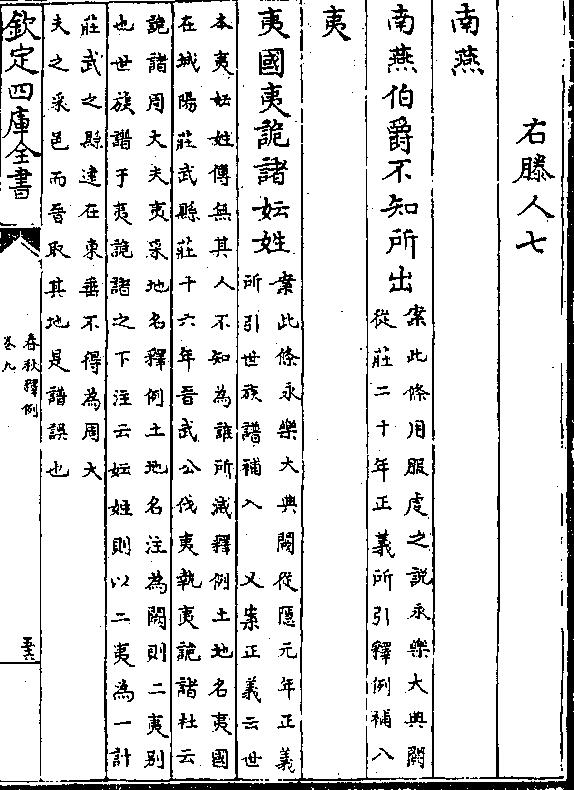 右滕人七
南燕
南燕伯爵不知所出案此條用服虔之說永樂大典闕
從莊二十年正義所引釋例補入
夷
夷國夷詭諸妘姓案此條永樂大典闕從隱元年正義
所引世族譜補入 又案正義云世
本夷妘姓傳無其人不知為誰所滅釋例土地名夷國
在城陽莊武縣莊十六年晉武公伐夷執夷詭諸杜云
詭諸周大夫夷采地名釋例土地名注為闕則二夷别
也世族譜于夷詭諸之下注云妘姓則以二夷為一計
莊武之縣遠在東垂不得為周大
夫之采邑而晉取其地是譜誤也
欽定四庫全書
春秋釋例
卷九